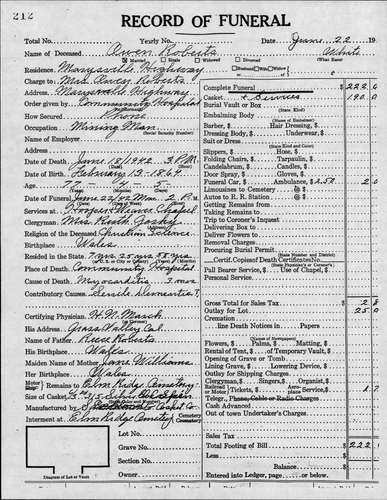 212
RECORD OF FUNERAL
Total No. Yearly No. Date June 22 19
Name of Deceased Owen Roberts White
Married Single Widowed Divorced (What Race)
Residence Marysville Highway
Charge to Mrs. Owen Roberts
Address Marysville Highway
Order given by Community Hospital
How Secured Phone
Occupation Mining Man
(Social Security Number)
Name of Employer
Address
Date of Death June 18/1942 3 P.M.
Date of Birth February 13-1864
Age 78
(Years) (Months) (Days)
Date of Funeral June 22/42 Mon. 2 P.M.
Services at Hooper Weaver Chapel
Clergyman Mrs. Ruth
Religion of the Deceased Christian Science
Birthplace Wales
Resided in the State 7 mos. 25 yrs. 58 yrs.
Place of Death Community Hospital
Cause of Death Myocarditis 3 mos
Contributory Causes Senile Dementia?
Certifying Physician H.N. March
His Address Grass Valley Cal.
Name of Father Roberts
His Birthplace Wales
Maiden Name of Mother Jane Williams
Her Birthplace Wales
Remains to Elm Ridge Cemetery
Size of Casket Silver
Manufactured by Casket Co.
Interment at Elm Ridge Cemetery
Lot No.
Grave No.
Section No.
Owner
Diagram of Lot or Vault
Complete Funeral $ 222.0
Casket + Services 190.0
Burial Vault or Box
(State Kind)
Embalming Body
(Name of Embalmer)
Barber, $ Hair Dressing, $
Dressing Body, $ Underwear, $
Suit or Dress
(State Kind and Color)
Slippers, $ Hose, $
Folding Chairs, $ Tarpaulin, $
Candelabrum, $ Candles, $
Door Spray, $ Gloves, $
Funeral Car, $ Ambulance, $ 2.50
Limousines to Cemetery @ $
Autos to R. R. Station @ $
Getting Remains from
Taking Remains to
Trip to Coroner's Inquest
Delivering Box to
Deliver Flowers to
Removal Charges
Procuring Burial Permit
(State Number and District)
Certif. Copies of Death Certificates No.
(State Physician's or Coroner's)
Pall Bearer Service, $ Use of Chapel, $
Personal Service
Gross Total for Sales Tax $
Outlay for Lot $ 25.0
Cremation
line Death Notices in Papers
(Names of Newspapers)
Flowers, $ Palms, $ Matting, $
Rental of Tent, $ of Temporary Vault, $
Opening of Grave or Tomb
Lining Grave, $ Lowering Device, $
Outlay for Shipping Charges
Clergyman, $ Singers, $ Organist, $
Tickets, $
Teleg., Phone, Cable or Radio Charges
Cash Advanced
Out of town Undertaker's Charges
Sales Tax
Total Footing of Bill $ 222
Less
Balance
Entered into Ledger, page or below.